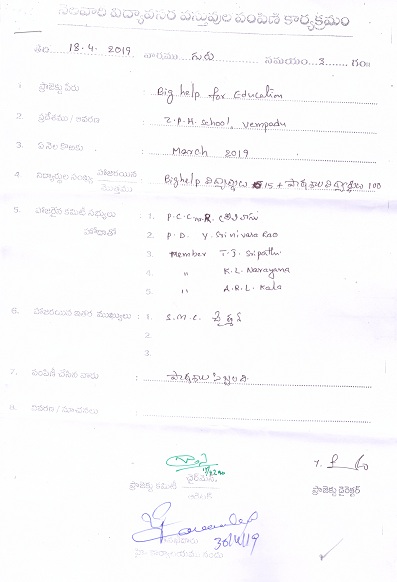 నెలవారి విద్యావసర వస్తువుల పంపిణీ కార్యక్రమం
తేది 18.4.2019 వారము గురు సమయం 3 గం॥
1. ప్రాజెక్టు పేరు : Big help for Education
2. ప్రదేశము / ఆవరణ : Z.P.H. School, Vempadu
3. ఏ నెల కొరకు : March 2019
4. విద్యార్థుల సంఖ్య హాజరయిన మొత్తము : Bighelp విద్యార్థులు 15 + పాఠశాల విద్యార్థులు 100
5. హాజరైన కమిటీ సభ్యులు : 1. P.C.C.
హోదాతో 2. P.D. Y. Srinivasa Rao
3. Member T.J. Sripathi
4. " K.L. Narayana
5. " A.R.L. Kala
6. హాజరయిన ఇతర ముఖ్యులు : 1. S.M.C. చైర్మన్
2.
3.
7. పంపిణీ చేసిన వారు : పాఠశాల సిబ్బంది
8. వివరణ / సూచనలు :
ప్రాజెక్టు కమిటీ చైర్మన్
ప్రాజెక్టు డైరెక్టర్
30/4/19